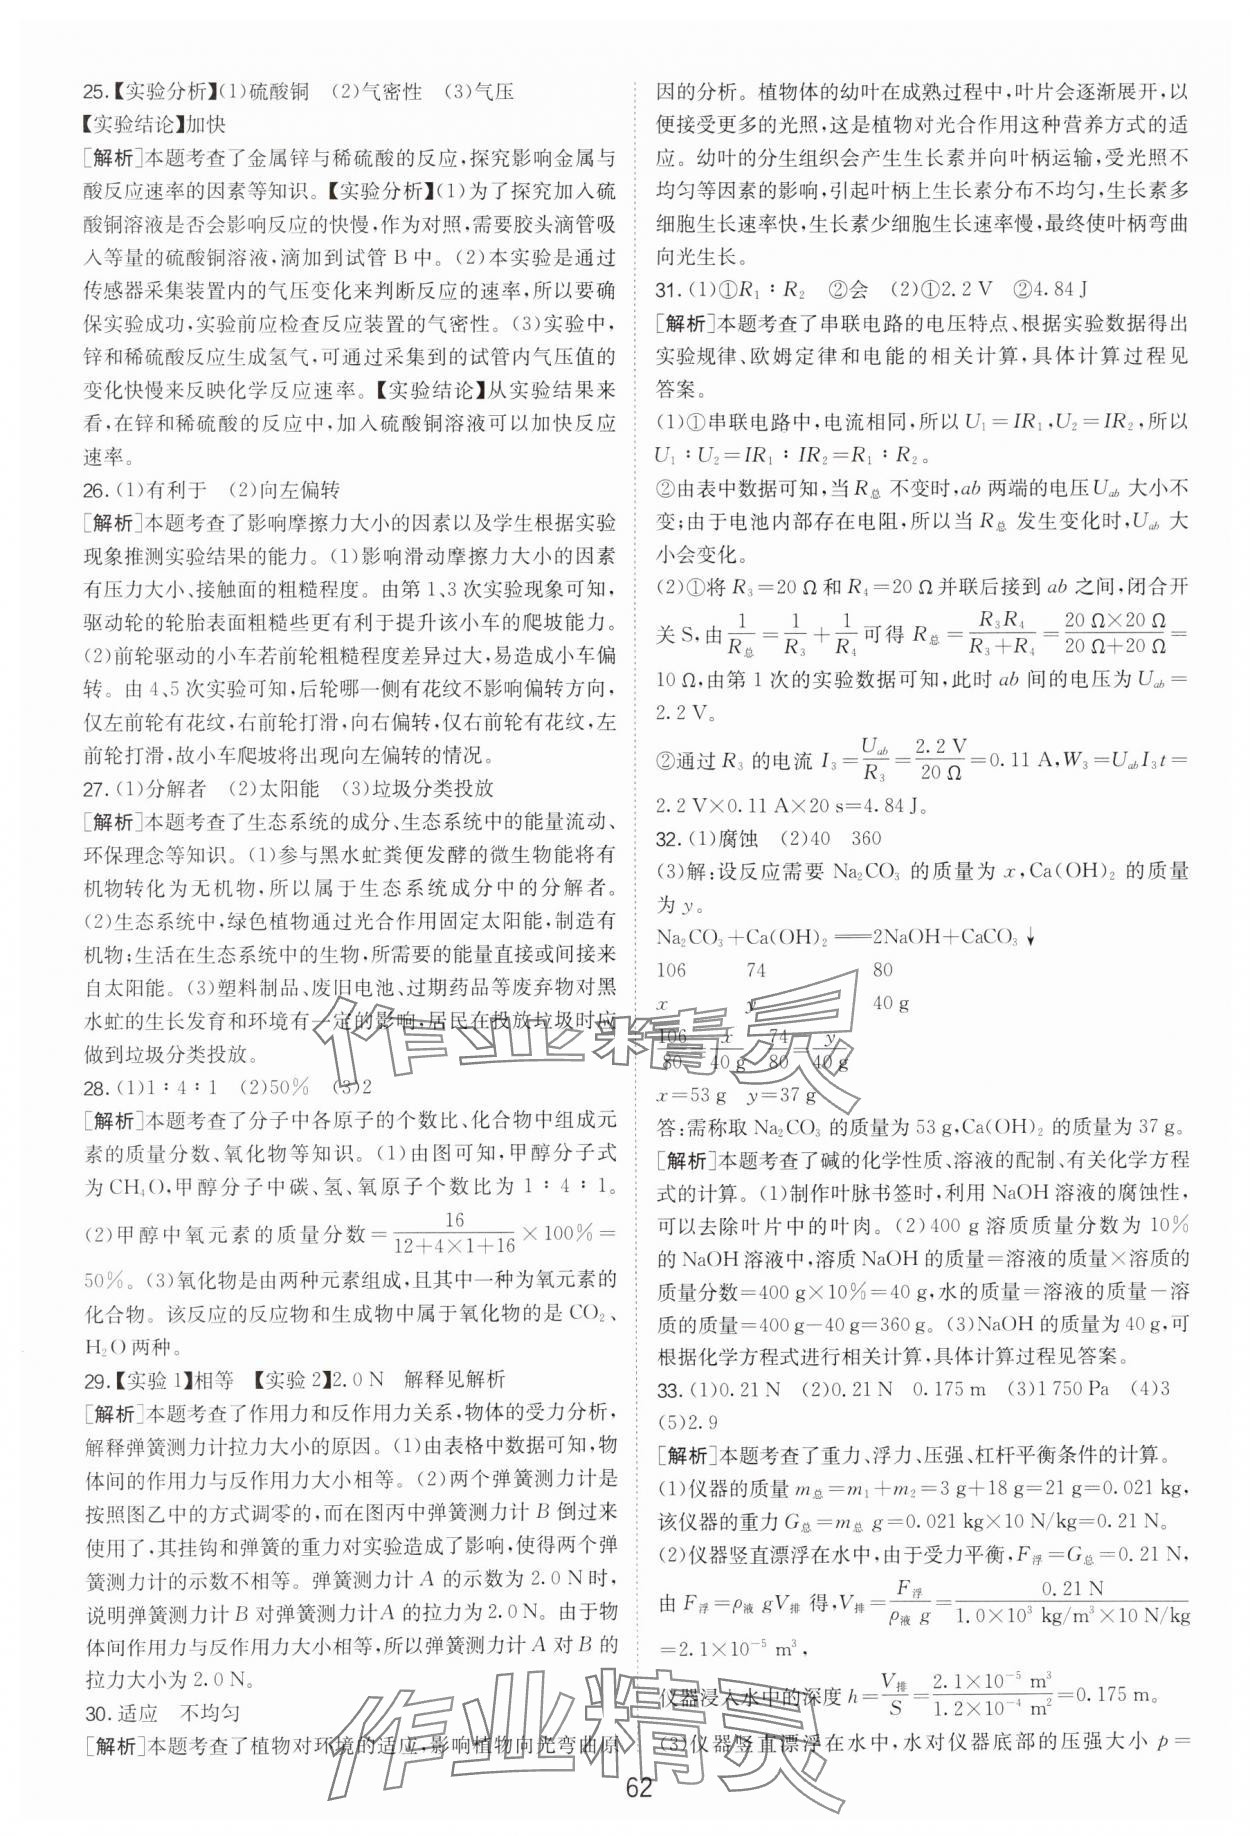 25.【实验分析】(1)硫酸铜　(2)气密性　(3)气压
【实验结论】加快
[解析]本题考查了金属锌与稀硫酸的反应,探究影响金属与
酸反应速率的因素等知识。【实验分析】(1)为了探究加入硫
酸铜溶液是否会影响反应的快慢,作为对照,需要胶头滴管吸
入等量的硫酸铜溶液,滴加到试管 B 中。(2)本实验是通过
传感器采集装置内的气压变化来判断反应的速率,所以要确
保实验成功,实验前应检查反应装置的气密性。(3)实验中,
锌和稀硫酸反应生成氢气,可通过采集到的试管内气压值的
变化快慢来反映化学反应速率。【实验结论】从实验结果来
看,在锌和稀硫酸的反应中,加入硫酸铜溶液可以加快反应
速率。
26.(1)有利于　(2)向左偏转
[解析]本题考查了影响摩擦力大小的因素以及学生根据实验
现象推测实验结果的能力。(1)影响滑动摩擦力大小的因素
有压力大小、接触面的粗糙程度。由第 1、3 次实验现象可知,
驱动轮的轮胎表面粗糙些更有利于提升该小车的爬坡能力。
(2)前轮驱动的小车若前轮粗糙程度差异过大,易造成小车偏
转。由 4、5 次实验可知,后轮哪一侧有花纹不影响偏转方向,
仅左前轮有花纹,右前轮打滑,向右偏转,仅右前轮有花纹,左
前轮打滑,故小车爬坡将出现向左偏转的情况。
27.(1)分解者　(2)太阳能　(3)垃圾分类投放
[解析]本题考查了生态系统的成分、生态系统中的能量流动、
环保理念等知识。(1)参与黑水虻粪便发酵的微生物能将有
机物转化为无机物,所以属于生态系统成分中的分解者。
(2)生态系统中,绿色植物通过光合作用固定太阳能,制造有
机物;生活在生态系统中的生物,所需要的能量直接或间接来
自太阳能。(3)塑料制品、废旧电池、过期药品等废弃物对黑
水虻的生长发育和环境有一定的影响,居民在投放垃圾时应
做到垃圾分类投放。
28.(1)1∶4∶1　(2)50%　(3)2
[解析]本题考查了分子中各原子的个数比、化合物中组成元
素的质量分数、氧化物等知识。(1)由图可知,甲醇分子式
为CH₄O,甲醇分子中碳、氢、氧原子个数比为 1∶4∶1。
(2)甲醇中氧元素的质量分数=16/(12+4×1+16)×100%=
50%。(3)氧化物是由两种元素组成,且其中一种为氧元素的
化合物。该反应的反应物和生成物中属于氧化物的是 CO₂、
H₂O 两种。
29.【实验 1】相等　【实验 2】2.0 N　解释见解析
[解析]本题考查了作用力和反作用力关系,物体的受力分析,
解释弹簧测力计拉力大小的原因。(1)由表格中数据可知,物
体间的作用力与反作用力大小相等。(2)两个弹簧测力计是
按照图乙中的方式调零的,而在图丙中弹簧测力计 B 倒过来
使用了,其挂钩和弹簧的重力对实验造成了影响,使得两个弹
簧测力计的示数不相等。弹簧测力计 A 的示数为 2.0 N时,
说明弹簧测力计 B 对弹簧测力计A 的拉力为 2.0 N。由于物
体间作用力与反作用力大小相等,所以弹簧测力计 A 对 B 的
拉力大小为 2.0 N。
30.适应　不均匀
[解析]本题考查了植物对环境的适应,影响植物向光弯曲原
因的分析。植物体的幼叶在成熟过程中,叶片会逐渐展开,以
便接受更多的光照,这是植物对光合作用这种营养方式的适
应。幼叶的分生组织会产生生长素并向叶柄运输,受光照不
均匀等因素的影响,引起叶柄上生长素分布不均匀,生长素多
细胞生长速率快,生长素少细胞生长速率慢,最终使叶柄弯曲
向光生长。
31.(1)①R₁∶R₂　②会　(2)①2.2 V　②4.84 J
[解析]本题考查了串联电路的电压特点、根据实验数据得出
实验规律、欧姆定律和电能的相关计算,具体计算过程见
答案。
(1)①串联电路中,电流相同,所以 U₁=IR₁,U₂=IR₂,所以
U₁∶U₂=IR₁∶IR₂=R₁∶R₂。
②由表中数据可知,当 R总 不变时,ab 两端的电压 Uab 大小不
变;由于电池内部存在电阻,所以当 R总 发生变化时,Uab 大
小会变化。
(2)①将 R₃=20 Ω 和 R₄=20 Ω 并联后接到 ab 之间,闭合开
关 S,由 1/R总=1/R₃+1/R₄ 可得 R总=R₃R₄/(R₃+R₄)=(20 Ω×20 Ω)/(20 Ω+20 Ω)=
10 Ω,由第 1 次的实验数据可知,此时 ab 间的电压为 Uab=
2.2 V。
②通过 R₃ 的电流 I₃=Uab/R₃=2.2 V/20 Ω=0.11 A,W₃=UabI₃t=
2.2 V×0.11 A×20 s=4.84 J。
32.(1)腐蚀　(2)40　360
(3)解:设反应需要 Na₂CO₃ 的质量为 x,Ca(OH)₂ 的质量
为 y。
Na₂CO₃+Ca(OH)₂══2NaOH+CaCO₃↓
106　74　80
x　y　40 g
106/80=x/40 g　74/80=y/40 g
x=53 g　y=37 g
答:需称取 Na₂CO₃ 的质量为 53 g,Ca(OH)₂ 的质量为 37 g。
[解析]本题考查了碱的化学性质、溶液的配制、有关化学方程
式的计算。(1)制作叶脉书签时,利用 NaOH 溶液的腐蚀性,
可以去除叶片中的叶肉。(2)400 g 溶质质量分数为 10%
的 NaOH 溶液中,溶质 NaOH 的质量=溶液的质量×溶质的
质量分数=400 g×10%=40 g,水的质量=溶液的质量-溶
质的质量=400 g-40 g=360 g。(3)NaOH 的质量为 40 g,可
根据化学方程式进行相关计算,具体计算过程见答案。
33.(1)0.21 N　(2)0.21 N　0.175 m　(3)1 750 Pa　(4)3
(5)2.9
[解析]本题考查了重力、浮力、压强、杠杆平衡条件的计算。
(1)仪器的质量 m总=m₁+m₂=3 g+18 g=21 g=0.021 kg,
该仪器的重力 G总=m总 g=0.021 kg×10 N/kg=0.21 N。
(2)仪器竖直漂浮在水中,由于受力平衡,F浮=G总=0.21 N,
由 F浮=ρ液 gV排 得,V排=F浮/(ρ液 g)=0.21 N/(1.0×10³ kg/m³×10 N/kg)
=2.1×10⁻⁵ m³,
仪器浸入水中的深度 h=V排/S=2.1×10⁻⁵ m³/1.2×10⁻⁴ m²=0.175 m。
(3)仪器竖直漂浮在水中,水对仪器底部的压强大小 p=
62
作业精灵
作业精灵